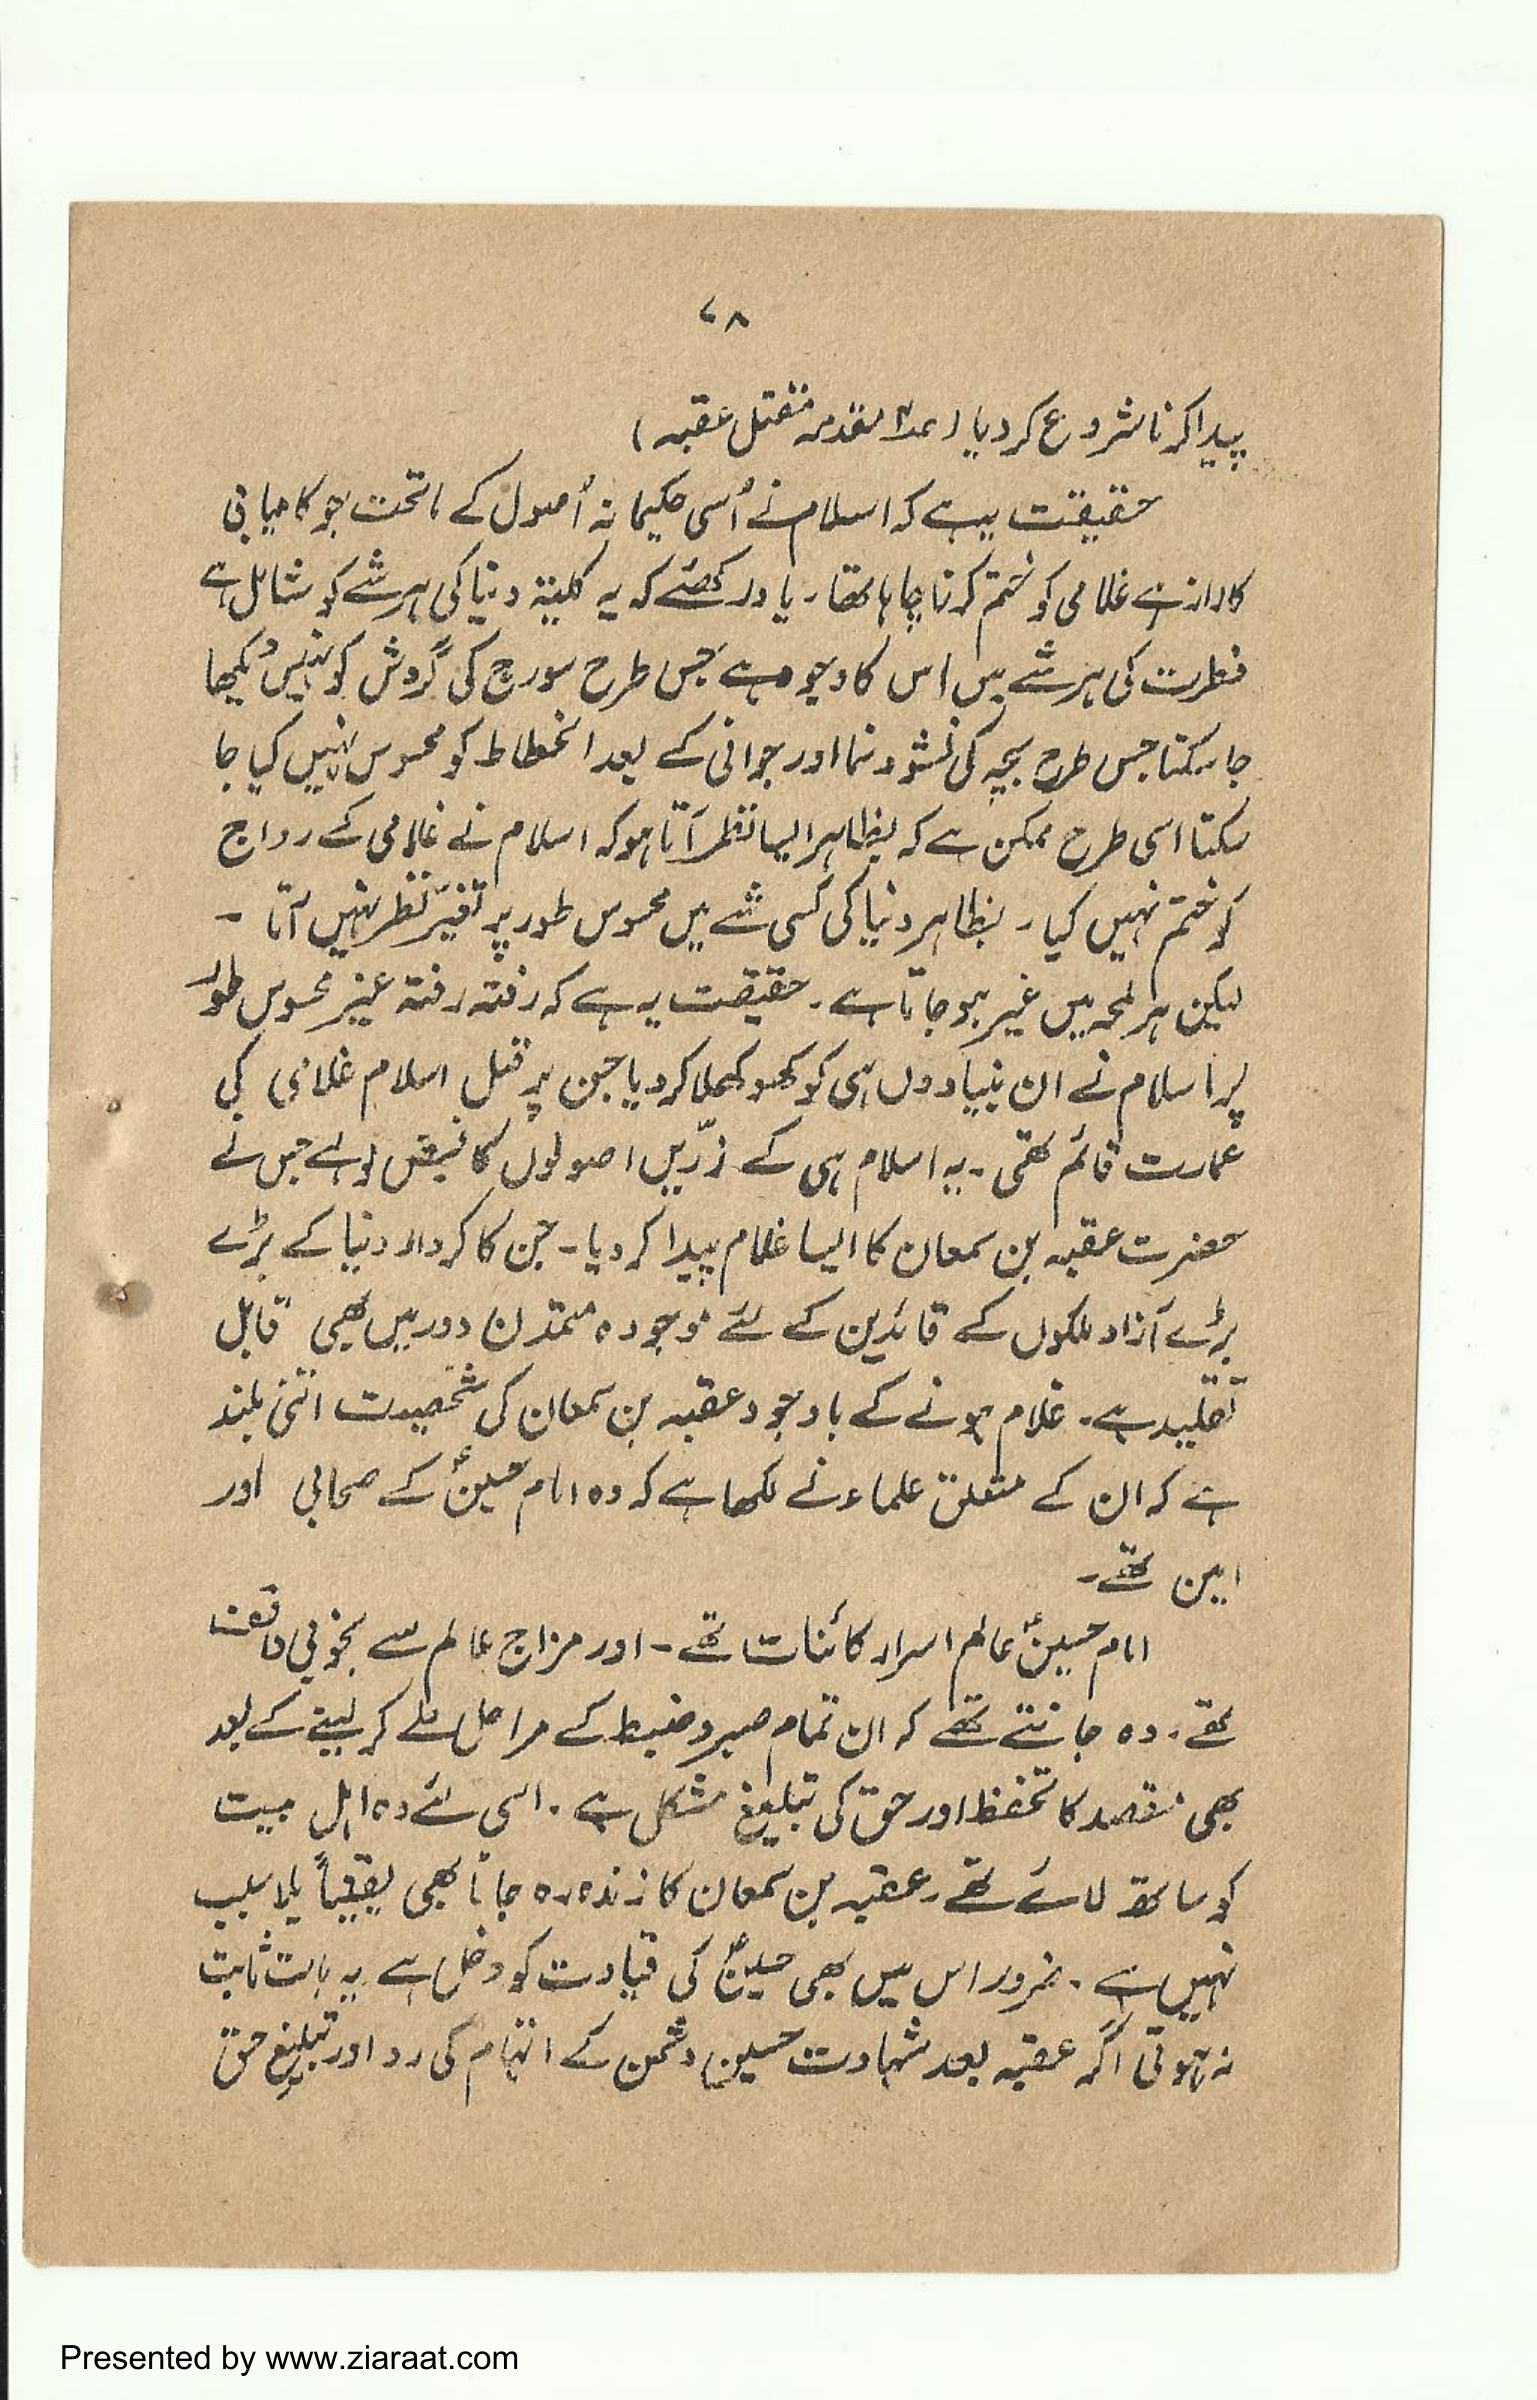 ۷۸
پیدا کرنا شروع کر دیا (مقدمہ مقتل عقبہ)
حقیقت یہ ہے کہ اسلام نے اُسی حکیمانہ اُصول کے ماتحت جو کامیابی
کا راز ہے غلامی کو ختم کرنا چاہا تھا۔ یاد رکھئے کہ یہ کلیتہ دنیا کی ہر شے کو شامل ہے
فطرت کی ہر شے میں اس کا وجود ہے جس طرح سورج کی گردش کو نہیں دیکھا
جا سکتا جس طرح بچہ کی نشو و نما اور جوانی کے بعد انحطاط کو محسوس نہیں کیا جا
سکتا اسی طرح ممکن ہے کہ بظاہر ایسا نظر آتا ہو کہ اسلام نے غلامی کے رواج
کو ختم نہیں کیا۔ بظاہر دنیا کی کسی شے میں محسوس طور پر تغیّر نظر نہیں آتا -
لیکن ہر لمحہ میں غیر ہو جاتا ہے۔ حقیقت یہ ہے کہ رفتہ رفتہ غیر محسوس طور
پر اسلام نے ان بنیادوں ہی کو کھوکھلا کر دیا جن پر قبل اسلام غلامی کی
عمارت قائم تھی۔ یہ اسلام ہی کے زرّیں اصولوں کا فیض ہے جس نے
حضرت عقبہ بن سمعان کا ایسا غلام پیدا کر دیا۔ جن کا کردار دنیا کے بڑے
بڑے آزاد ملکوں کے قائدین کے لئے موجودہ متمدن دور میں بھی قابل
تقلید ہے۔ غلام ہونے کے باوجود عقبہ بن سمعان کی شخصیت اتنی بلند
ہے کہ ان کے متعلق علماء نے لکھا ہے کہ وہ امام حسینؑ کے صحابی اور
امین تھے۔
امام حسینؑ عالم اسرار کائنات تھے۔ اور مزاج عالم سے بخوبی واقف
تھے۔ وہ جانتے تھے کہ ان تمام صبر و ضبط کے مراحل طے کر لینے کے بعد
بھی مقصد کا تحفظ اور حق کی تبلیغ مشکل ہے۔ اسی لئے وہ اہل بیت
کو ساتھ لائے تھے۔ عقبہ بن سمعان کا زندہ رہ جانا بھی یقیناً بلا سبب
نہیں ہے۔ ضرور اس میں بھی حسینؑ کی قیادت کو دخل ہے یہ بات ثابت
نہ ہوتی اگر عقبہ بعد شہادت حسین دشمن کے اتہام کی رد اور تبلیغ حق
Presented by www.ziaraat.com